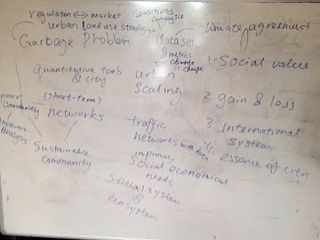 regulator <-> market
urban land use strategy
sensitivity analysis
Garbage Problem
climate agreement
& metrics
climate change
1. Social value
Quantitative tools
& city
urban
scaling
2. gain & loss
(short-term)
networks
community
traffic
networks
3. International
system
4. essence of city
Sustainable
community
improve
Social economical
needs
Social system
&
ecosystem